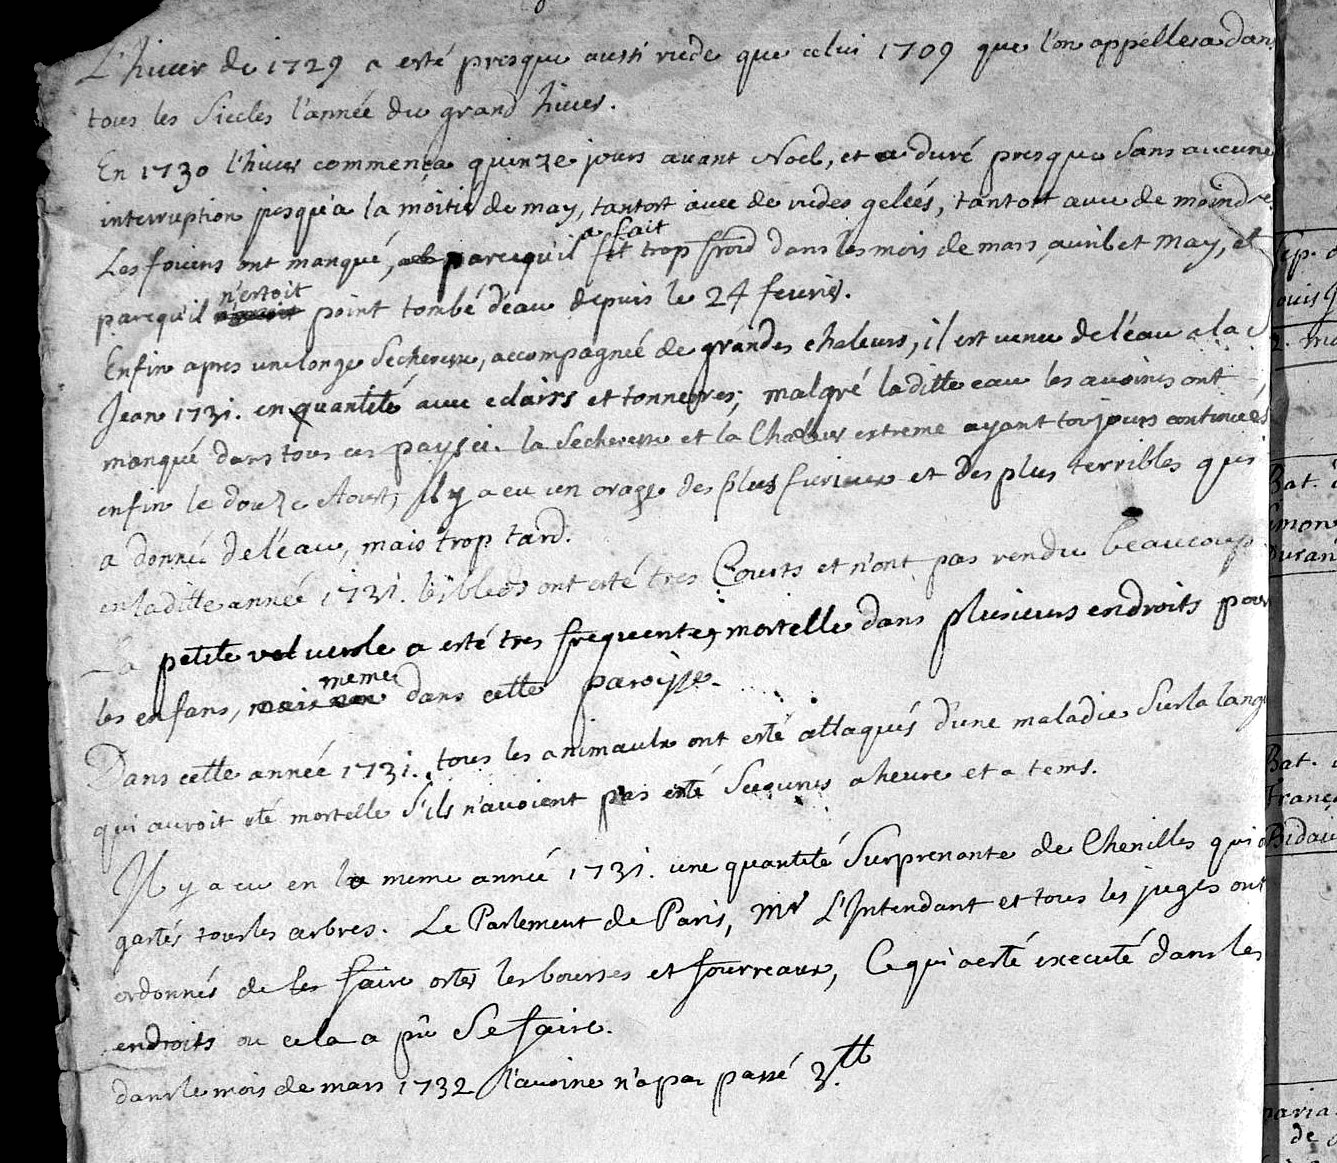 L'hiver de 1729 a esté presque aussi rude que celui 1709 que l'on appellera dans
tous les Siecles l'année du grand hiver.
En 1730 l'hiver commença quinze jours avant Noel, et a duré presque Sans aucune
interruption jusqu'a la moitié de may, tantost avec de rudes gelées, tantost avec de moindres
Les foins ont manqué, parcequ'il a fait trop froid dans les mois de mars, avril et may, et
parcequ'il n'estoit point tombé d'eau depuis le 24 fevrier.
Enfin apres une longue Secheresse, accompagnée de grandes chaleurs, il est venu de l'eau a la S
Jean 1731. en quantité avec eclairs et tonnerres; malgré laditte eau les avoines ont
manqué dans tous ces pays ci. la Secheresse et la Chaleur extreme ayant toujours continuées
enfin le douze Aoust, il y a eu un orage des plus furieux et des plus terribles qui
a donné de l'eau, mais trop tard.
en laditte année 1731. les bleds ont esté tres Courts et n'ont pas rendu beaucoup
La petite verole a esté tres frequente, mortelle dans plusieurs endroits pour
les enfans, meme dans cette paroisse.
Dans cette année 1731. tous les animaulx ont esté attaqués d'une maladie Sur la langue
qui auroit esté mortelle S'ils n'avoient pas esté Secourus a heure et a tems.
Il y a eu en la meme année 1731. une quantité Surprenante de Chenilles qui o
gastés tous les arbres. Le Parlement de Paris, Mr L'Intendant et tous les juges ont
ordonnés de les faire oster les bourses et fourreaux, Ce qui a esté executé dans les
endroits ou cela a pû Se faire.
dans le mois de mars 1732 l'avoine n'a pas passé 3.tt
Sep. d
ouis J
Bat. d
imon
Duran
Bat. d
franç
Bidau
maria
de